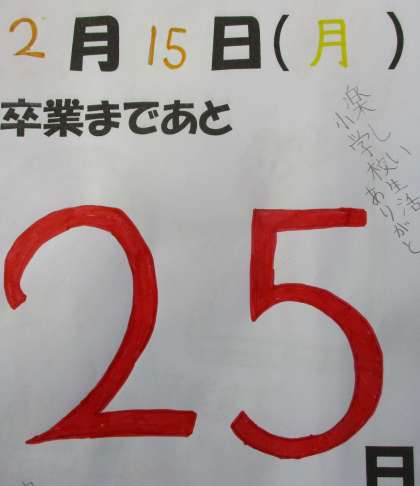 2月15日(月)
卒業まであと
楽しい
小学校生活
ありがと
25
日